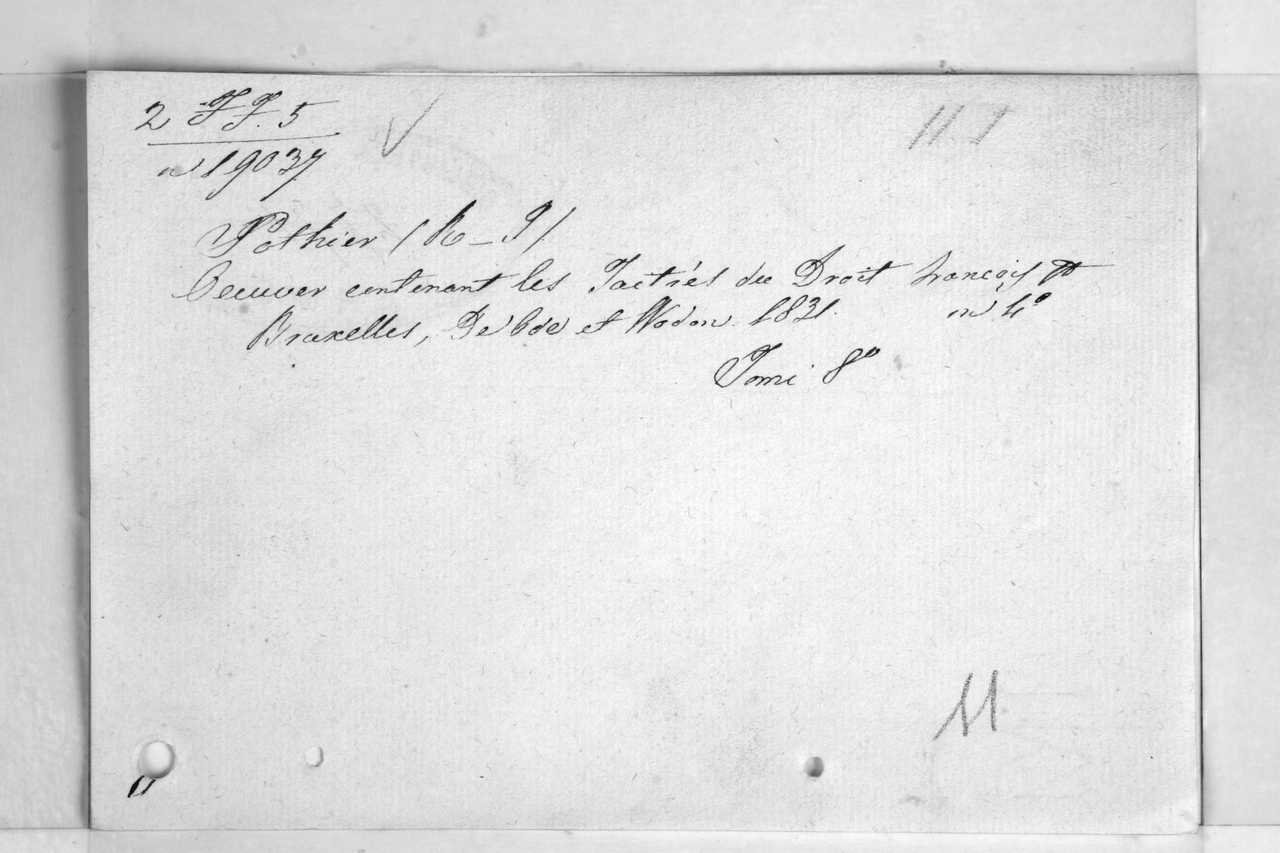 2 FF. 5
nº 19037
Pothier (R-J)
Oeuvres contenant les Traités du Droit français
Bruxelles, De bde et Wodon. 1831. in 4º
Tome 8º
11